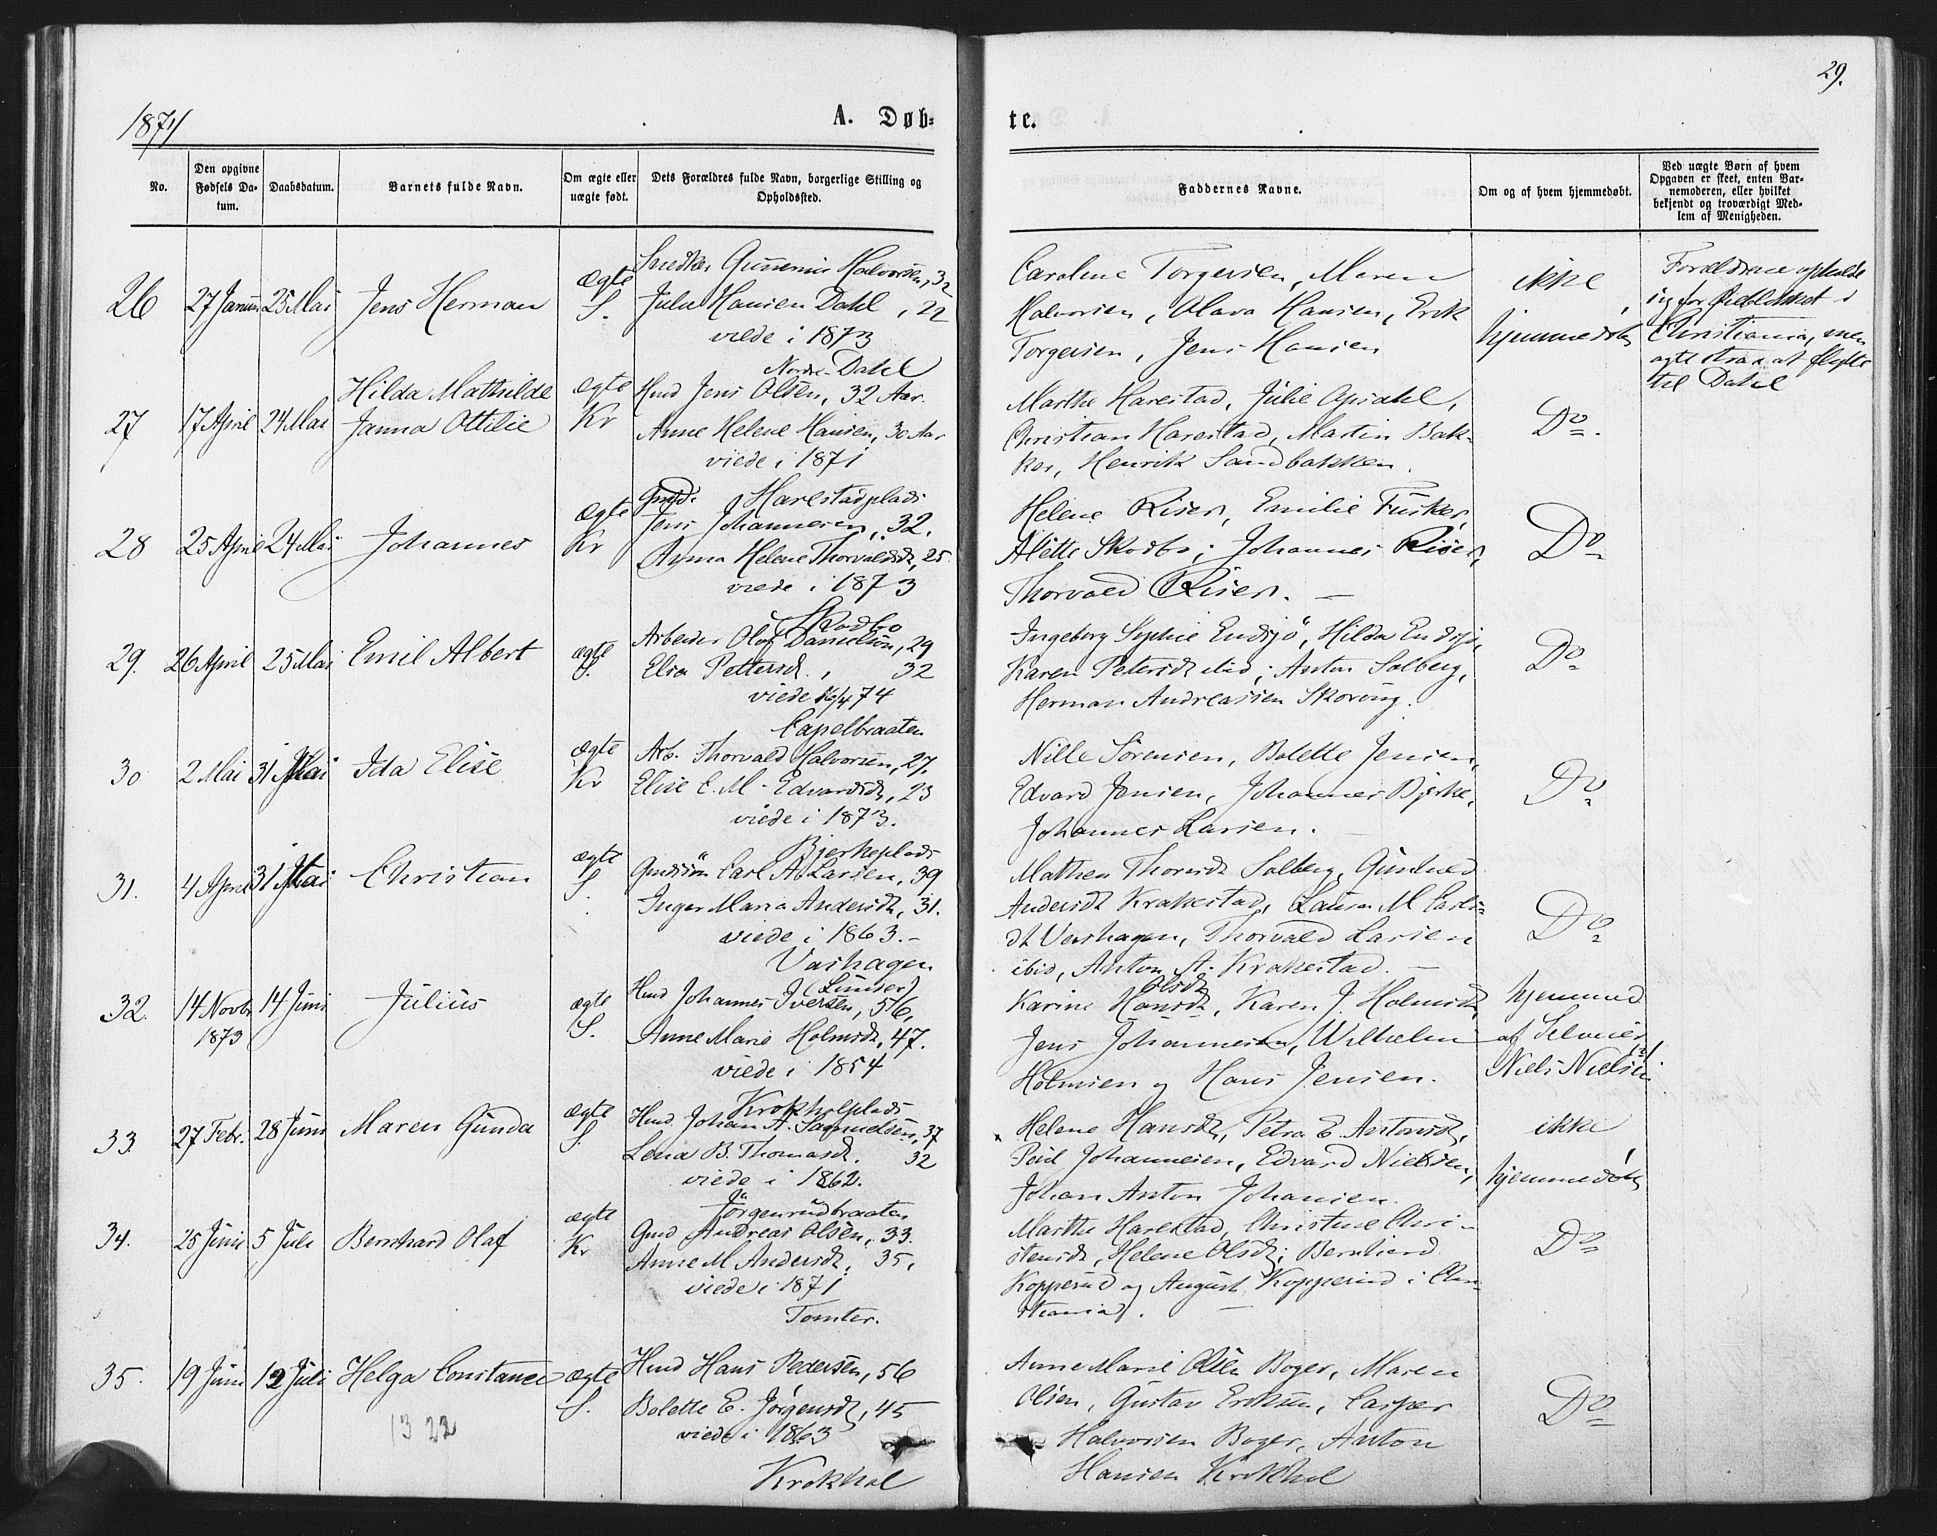 29.
1874
A. Døb-
te.
No.
Den opgivne Fødsels Da-
tum.
Daabsdatum.
Barnets fulde Navn.
Om ægte eller
uægte født.
Dets Forældres fulde Navn, borgerlige Stilling og
Opholdssted.
Faddernes Navne.
Om og af hvem hjemmedøbt.
Ved uægte Børn af hvem
Opgaven er skeet, enten Bar-
nemoderen, eller hvilket
bekjendt og troværdigt Med-
lem af Menigheden.
26
27 Januar
25 Mai
Jens Herman
ægte
S.
Gunerius Halvorsen, 32
Julie Hansen Dahl, 22
viede i 1873
Nordre Dahl
Caroline Torgersen, Maren
Halvorsen, Olava Hansen, Erik
Torgersen, Jens Hansen
ikke
hjemmedøbt
Forældrene opholde
sig for Øieblikket i
Christiania, men
agte strax at flytte
til Dahl
27
17 April
24 Mai
Hilda Mathilde
Janna Ottilie
ægte
Kr
Hmd Jens Olsen, 32 Aar.
Anne Helene Hansen, 30 Aar
viede i 1871
Harestadplads
Marthe Harestad, Julie Opsahl,
Christian Harestad, Martin Bak-
ker, Henrik Sandbakken.
Do.
28
25 April
24 Mai
Johannes
ægte
Kr
Gmd.
Jens Johannesen, 32.
Anna Helene Thorvaldsdt, 25
viede i 1873
Skodbo
Helene Riser, Emilie Tusker,
Alette Skodbo; Johannes Riser,
Thorvald Riser.
Do
29.
26 April
25 Mai
Emil Albert
ægte
S.
Arbeider Olof Danielsen, 29
Elisa Pettersdt., 32
viede 16/4 74
Capelbraaten
Ingeborg Sophie Endsjø, Hilda Endsjø,
Karen Petersdt ibid; Anton Solberg,
Herman Andreassen Skoring.
Do
30
2 Mai
31 Mai
Ida Elise
ægte
Kr
Arb. Thorvald Halvorsen, 27.
Elise E. M. Edvardsdt, 23
viede i 1873.
Bjerkeplads
Nille Sørensen, Bolette Jensen,
Edvard Jensen, Johannes Bjerke,
Johannes Larsen.
Do
31.
4 April
31 Mai
Christian
ægte
S.
Carl A. Larsen, 39
Inger Maria Andersdt, 31.
viede i 1863.
Vashagen
Mathea Thorsdt Solberg, Gunhild
Andersdt Krakestad, Laura M. Carls-
dt Vashagen, Thorvald Larsen
ibid, Anton A. Krakestad.
Do
32.
14 Novbr
1873
14 Juni
Julius
ægte
S.
Hmd Johannes Iversen, 56,
Anne Marie Holmsdt, 47.
viede i 1854
Krokholplads
Olsdt
Karine Hansdt, Karen J. Holmsdt,
Jens Johannesen, Wilhelm
Holmsen og Hans Jensen.
hjemmed
af Selveier
Niels Nielsen
33.
27 Febr.
28 Juni
Maren Gunda
ægte
S
Hmd. Johan A. Samuelsen, 37
Lena B. Thomasdt. 32
viede i 1862.
Jørgenrudbraaten
Helene Hansdt, Petra E. Antonsdt,
Poul Johannesen, Edvard Nielsen,
Johan Anton Johansen.
ikke
hjemmedøbt
34.
25 Juni
5 Juli
Bernhard Olaf
ægte
Kr
Gmd Andreas Olsen, 33.
Anne M Andersdt, 35,
viede i 1871
Tomter.
Marthe Harestad, Christine Chri-
stensdt, Helene Olsdt; Bernhard
Kopperud og August Kopperud i Chri-
stiania.
Do
35.
19 Juni
12 Juli
Helga Constance
ægte
S.
Hmd Hans Pedersen, 56
Bolette E. Jørgensdt, 45
viede i 1863
Krokhol
Anne Marie Olsen Boger, Maren
Olsen, Gustav Eriksen, Casper
Halvorsen Boger, Anton
Hansen Krokhol
Do
13 22